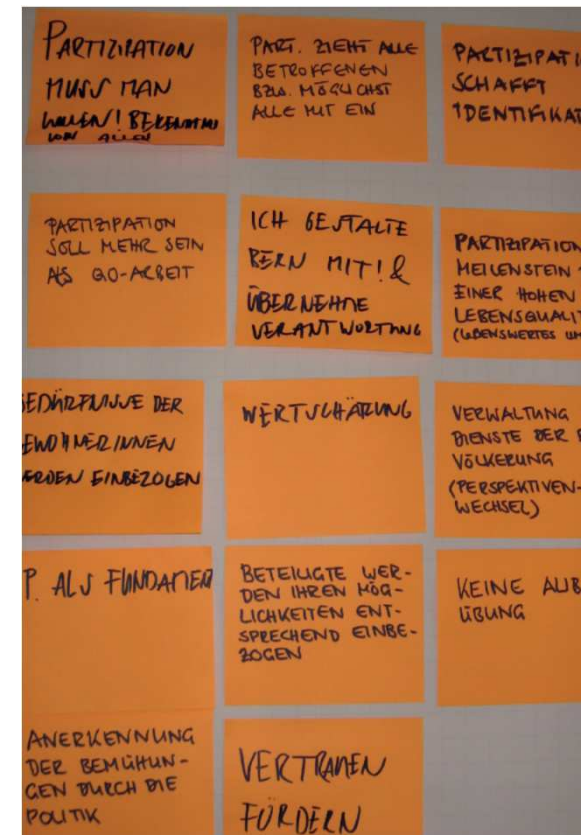 PARTIZIPATION
MUSS MAN
WOLLEN! BEKENNTNIS
VON ALLEN
PART. ZIEHT ALLE
BETROFFENEN
BZW. MÖGLICHST
ALLE MIT EIN
PARTIZIPATI
SCHAFFT
IDENTIFIKAT
PARTIZIPATION
SOLL MEHR SEIN
ALS QO-ARBEIT
ICH GESTALTE
BERN MIT! &
ÜBERNEHME
VERANTWORTUNG
PARTIZIPATION
MEILENSTEIN
EINER HOHEN
LEBENSQUALIT
(LEBENSWERTES UM
BEDÜRFNISSE DER
EWOHNER/INNEN
ERDEN EINBEZOGEN
WERTSCHÄTZUNG
VERWALTUNG
DIENSTE DER B
VÖLKERUNG
(PERSPEKTIVEN-
WECHSEL)
P. ALS FUNDAMEN
BETEILIGTE WER-
DEN IHREN MÖG-
LICHKEITEN ENT-
SPRECHEND EINBE-
ZOGEN
KEINE ALIB
ÜBUNG
ANERKENNUNG
DER BEMÜHUN-
GEN DURCH DIE
POLITIK
VERTRAUEN
FÖRDERN